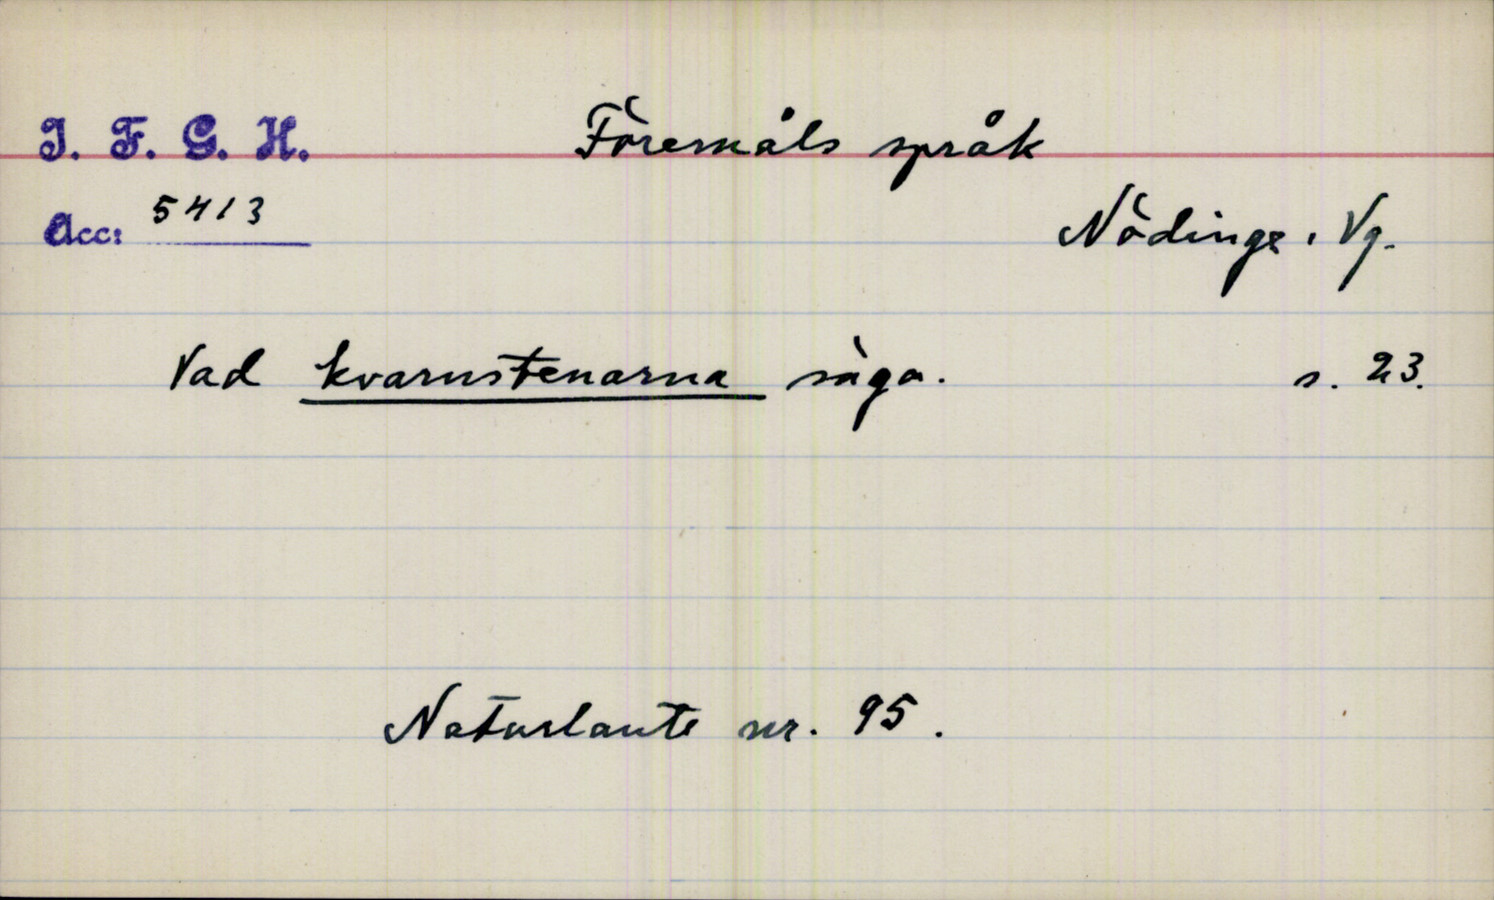 I. F. G. H.
Föremåls språk
Acc: 5413
Nödinge, Vg.
Vad kvarnstenarna säga. s. 23.
Naturlaute nr. 95.